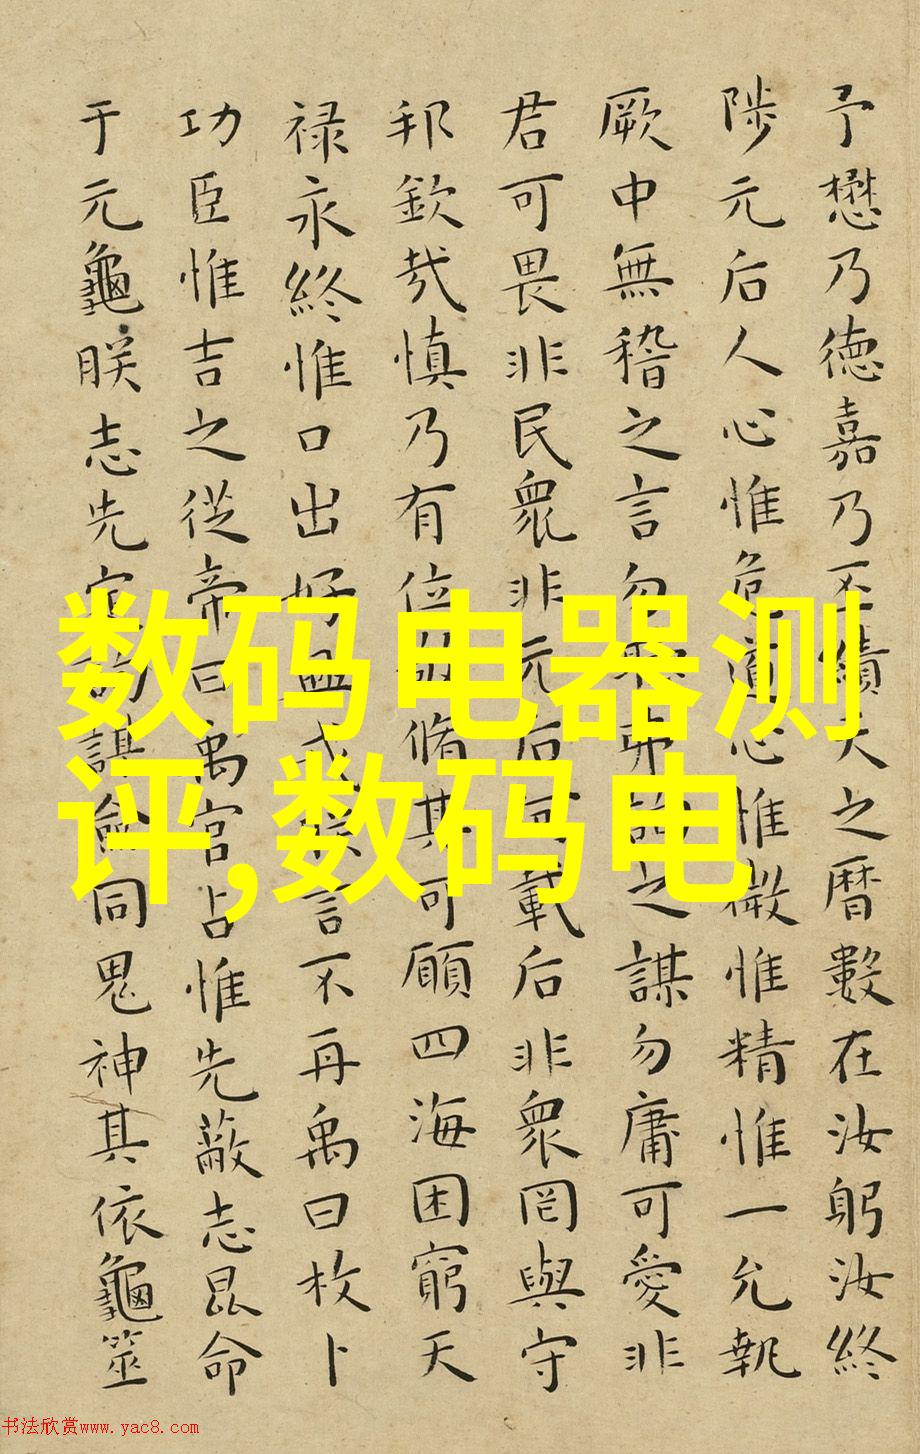 予懋乃德嘉乃丕績天之曆數在汝躬汝終
陟元后人心惟危道心惟微惟精惟一允執
厥中無稽之言勿聽弗詢之謀勿庸可愛非
君可畏非民衆非元后何戴后非衆罔與守
邦欽哉慎乃有位敬脩其可願四海困窮天
禄永終惟口出好興戎朕言不再禹曰枚卜
功臣惟吉之從帝曰禹官占惟先蔽志昆命
于元龜朕志先定詢謀僉同鬼神其依龜筮
数码电器测
评,数码电
书法欣赏www.yac8.com